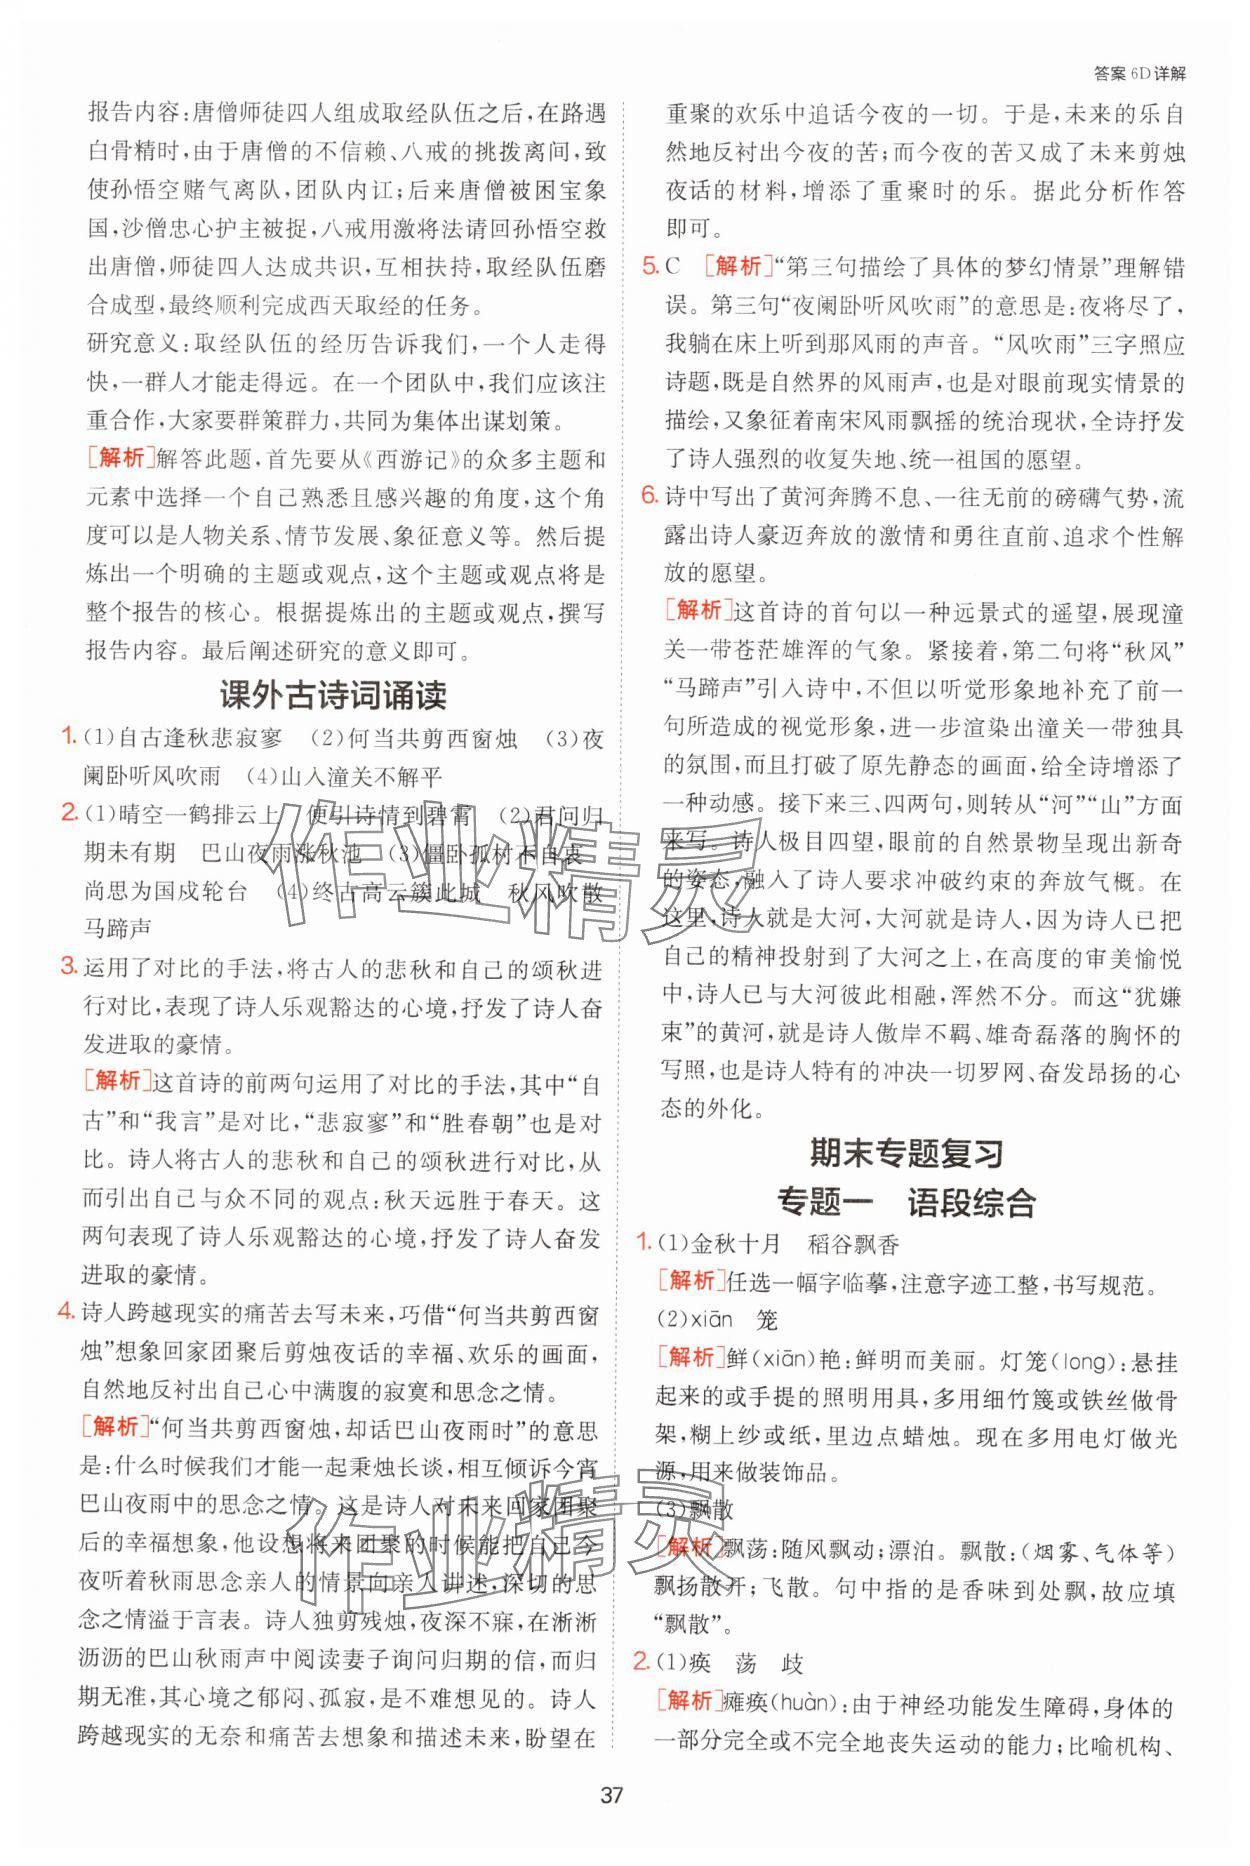 答案 6D详解
报告内容:唐僧师徒四人组成取经队伍之后,在路遇
白骨精时,由于唐僧的不信赖、八戒的挑拨离间,致
使孙悟空赌气离队,团队内讧;后来唐僧被困宝象
国,沙僧忠心护主被捉,八戒用激将法请回孙悟空救
出唐僧,师徒四人达成共识,互相扶持,取经队伍磨
合成型,最终顺利完成西天取经的任务。
研究意义:取经队伍的经历告诉我们,一个人走得
快,一群人才能走得远。在一个团队中,我们应该注
重合作,大家要群策群力,共同为集体出谋划策。
[解析]解答此题,首先要从《西游记》的众多主题和
元素中选择一个自己熟悉且感兴趣的角度,这个角
度可以是人物关系、情节发展、象征意义等。然后提
炼出一个明确的主题或观点,这个主题或观点将是
整个报告的核心。根据提炼出的主题或观点,撰写
报告内容。最后阐述研究的意义即可。
课外古诗词诵读
1. (1)自古逢秋悲寂寥 (2)何当共剪西窗烛 (3)夜
阑卧听风吹雨 (4)山入潼关不解平
2. (1)晴空一鹤排云上 便引诗情到碧霄 (2)君问归
期未有期 巴山夜雨涨秋池 (3)僵卧孤村不自哀
尚思为国戍轮台 (4)终古高云簇此城 秋风吹散
马蹄声
3. 运用了对比的手法,将古人的悲秋和自己的颂秋进
行对比,表现了诗人乐观豁达的心境,抒发了诗人奋
发进取的豪情。
[解析]这首诗的前两句运用了对比的手法,其中“自
古”和“我言”是对比,“悲寂寥”和“胜春朝”也是对
比。诗人将古人的悲秋和自己的颂秋进行对比,从
而引出自己与众不同的观点:秋天远胜于春天。这
两句表现了诗人乐观豁达的心境,抒发了诗人奋发
进取的豪情。
4. 诗人跨越现实的痛苦去写未来,巧借“何当共剪西窗
烛”想象回家团聚后剪烛夜话的幸福、欢乐的画面,
自然地反衬出自己心中满腹的寂寞和思念之情。
[解析]“何当共剪西窗烛,却话巴山夜雨时”的意思
是:什么时候我们才能一起秉烛长谈,相互倾诉今宵
巴山夜雨中的思念之情。这是诗人对未来回家团聚
后的幸福想象,他设想将来团聚的时候能把自己今
夜听着秋雨思念亲人的情景向亲人讲述,深切的思
念之情溢于言表。诗人独剪残烛,夜深不寐,在淅淅
沥沥的巴山秋雨声中阅读妻子询问归期的信,而归
期无准,其心境之郁闷、孤寂,是不难想见的。诗人
跨越现实的无奈和痛苦去想象和描述未来,盼望在
重聚的欢乐中追话今夜的一切。于是,未来的乐自
然地反衬出今夜的苦;而今夜的苦又成了未来剪烛
夜话的材料,增添了重聚时的乐。据此分析作答
即可。
5. C [解析]“第三句描绘了具体的梦幻情景”理解错
误。第三句“夜阑卧听风吹雨”的意思是:夜将尽了,
我躺在床上听到那风雨的声音。“风吹雨”三字照应
诗题,既是自然界的风雨声,也是对眼前现实情景的
描绘,又象征着南宋风雨飘摇的统治现状,全诗抒发
了诗人强烈的收复失地、统一祖国的愿望。
6. 诗中写出了黄河奔腾不息、一往无前的磅礴气势,流
露出诗人豪迈奔放的激情和勇往直前、追求个性解
放的愿望。
[解析]这首诗的首句以一种远景式的遥望,展现潼
关一带苍茫雄浑的气象。紧接着,第二句将“秋风”
“马蹄声”引入诗中,不但以听觉形象地补充了前一
句所造成的视觉形象,进一步渲染出潼关一带独具
的氛围,而且打破了原先静态的画面,给全诗增添了
一种动感。接下来三、四两句,则转从“河”“山”方面
来写。诗人极目四望,眼前的自然景物呈现出新奇
的姿态,融入了诗人要求冲破约束的奔放气概。在
这里,诗人就是大河,大河就是诗人,因为诗人已把
自己的精神投射到了大河之上,在高度的审美愉悦
中,诗人已与大河彼此相融,浑然不分。而这“犹嫌
束”的黄河,就是诗人傲岸不羁、雄奇磊落的胸怀的
写照,也是诗人特有的冲决一切罗网、奋发昂扬的心
态的外化。
期末专题复习
专题一 语段综合
1. (1)金秋十月 稻谷飘香
[解析]任选一幅字临摹,注意字迹工整,书写规范。
(2)xiān 笼
[解析]鲜(xiān)艳:鲜明而美丽。灯笼(long):悬挂
起来的或手提的照明用具,多用细竹篾或铁丝做骨
架,糊上纱或纸,里边点蜡烛。现在多用电灯做光
源,用来做装饰品。
(3)飘散
[解析]飘荡:随风飘动;漂泊。飘散:(烟雾、气体等)
飘扬散开;飞散。句中指的是香味到处飘,故应填
“飘散”。
2. (1)痪 荡 歧
[解析]瘫痪(huàn):由于神经功能发生障碍,身体的
一部分完全或不完全地丧失运动的能力;比喻机构、
37
作业精灵
作业精灵